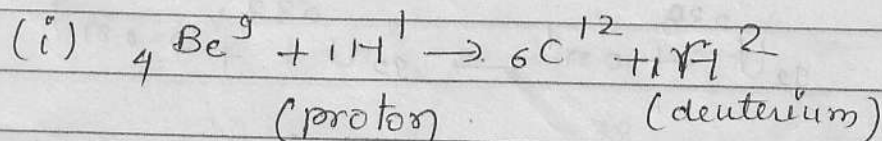 (i) ₄Be⁹ + ₁H¹ → ₆C¹² + ₁H²
(proton (deuterium)